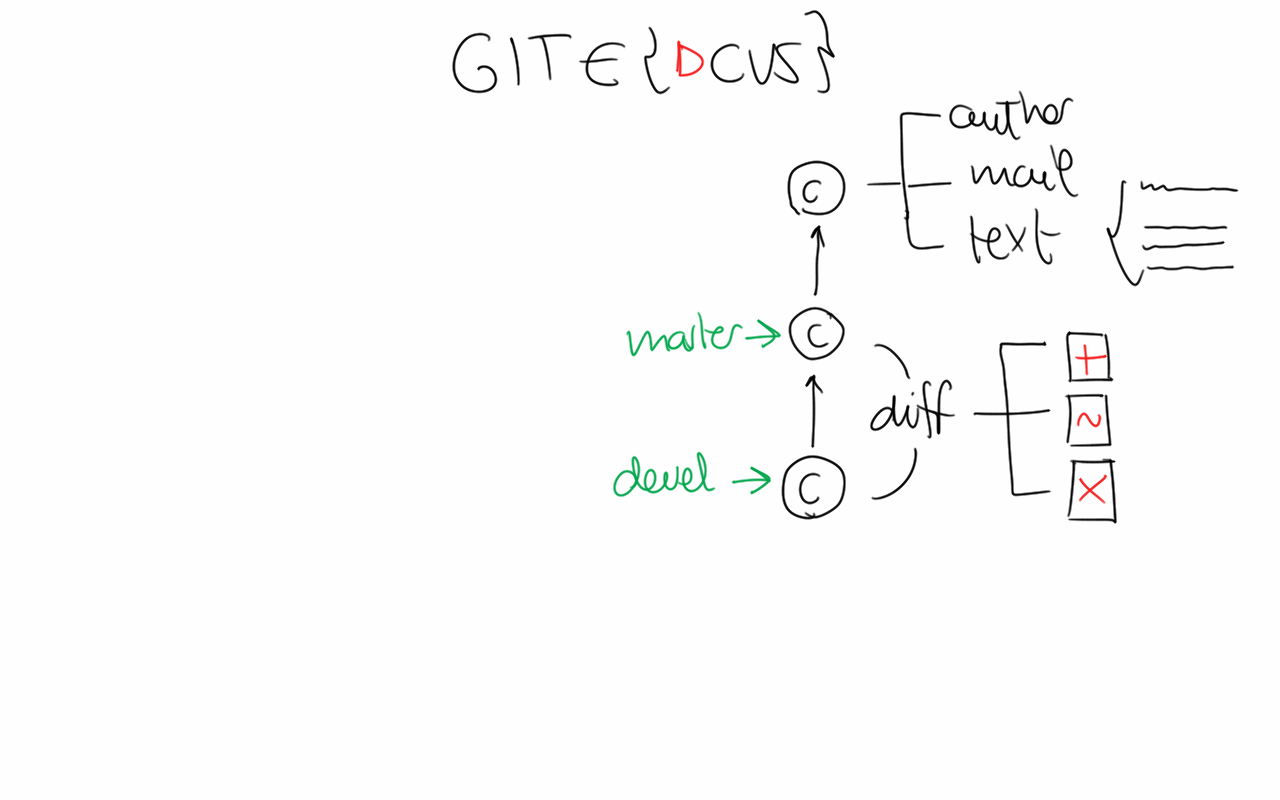 GIT ∈ {DCVS}
author
C
mail
text
master → C
+
diff
~
devel → C
×